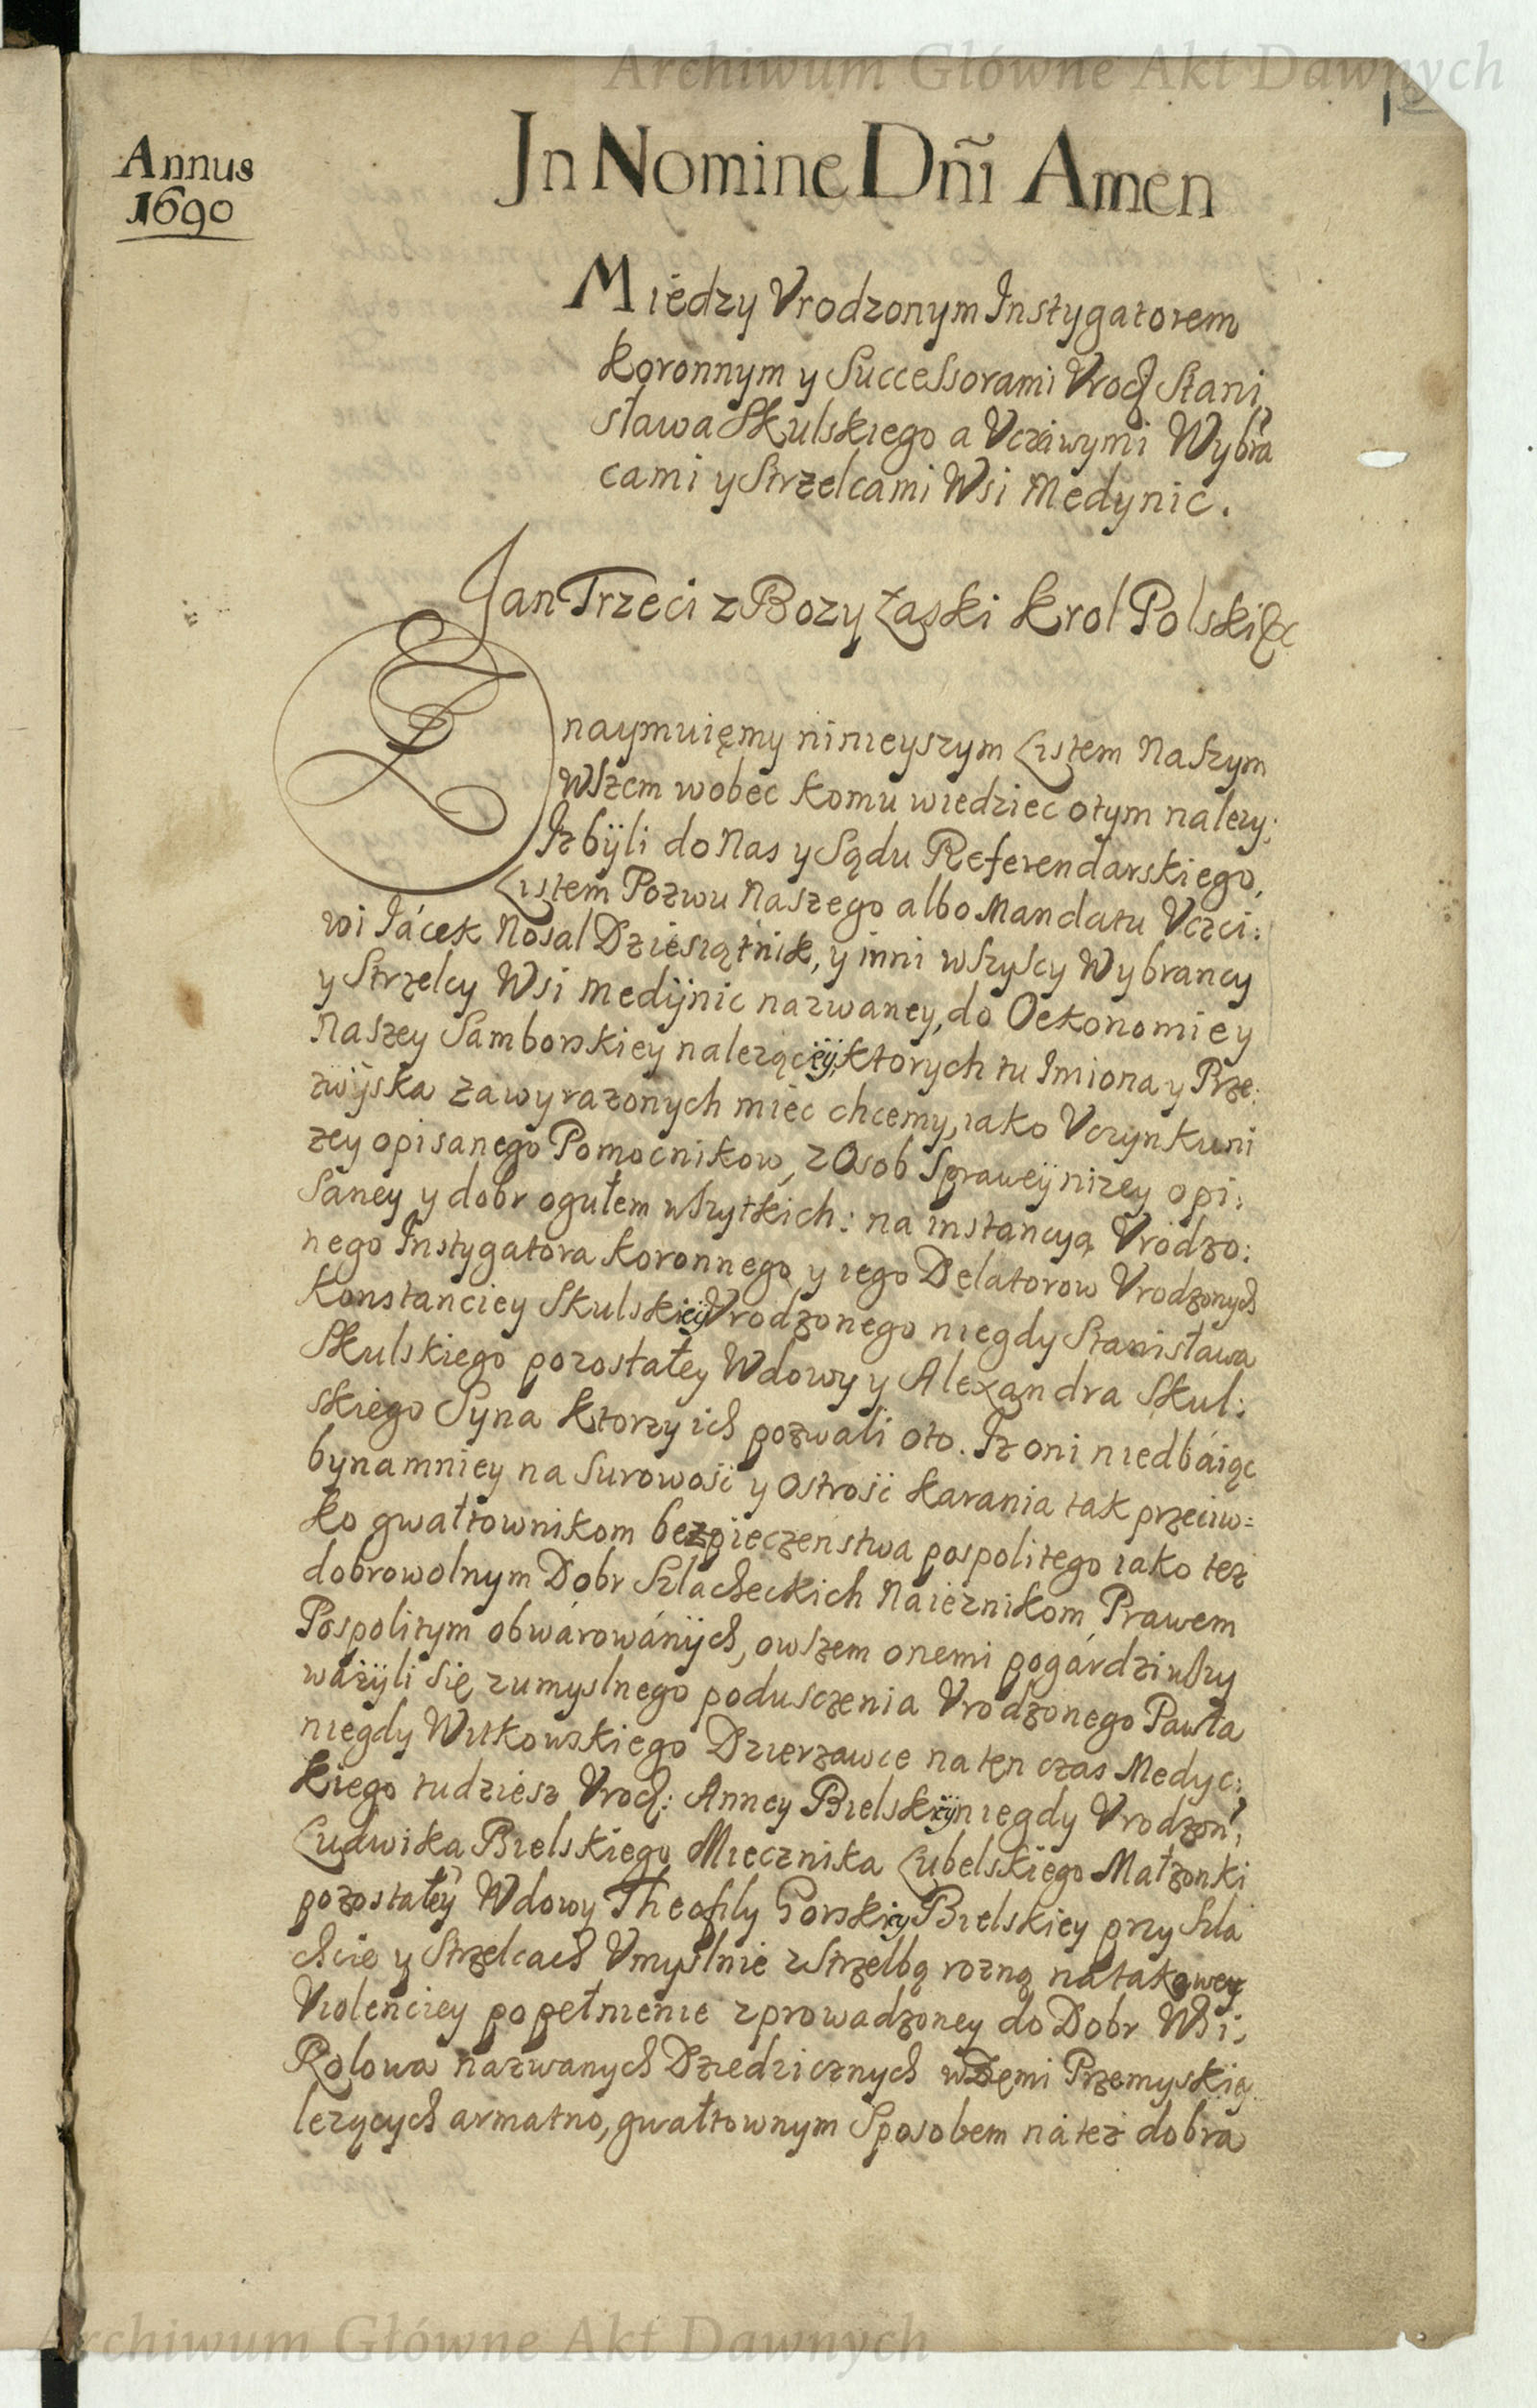 Archiwum Główne Akt Dawnych
1
Annus
1690
Jn Nomine Dñi Amen
Między Vrodzonym Instygatorem
Koronnym y Successorami Vrod Stani,
sława Skulskiego a Vcziwymi Wybra
cami y Strzelcami Wsi Medynic.
Jan Trzeci z Bozy Łaski Krol Polski &c
Znaymuięmy ninieyszym Listem Naszym
Wszem wobec komu wiedziec otym nalezy;
Iz byli do Nas y Sądu Referendarskiego,
Listem Pozwu Naszego albo Mandatu Vczci:
wi Jácek Nosal Dziesiątnik, y inni wszyscy Wybrancy
y Strzelcy Wsi Medÿnic nazwaney, do Oekonomiey
Naszey Samborskiey nalezącÿ, ktorych tu Imiona y Prze:
zwÿska za wyrazonych miec chcemy, iako Vczynku ni
zey opisanego Pomocnikow, z Osob Spraweÿ nizey opi:
saney y dobr ogułem wszytkich: na instancyą Vrodzo:
nego Instygatora Koronnego y iego Delatorow Vrodzonych
Konstanciey Skulskieÿ Vrodzonego niegdy Stanisława
Skulskiego pozostałey Wdowy y Alexandra Skul:
skiego Syna ktorzy ich pozwali oto. Iz oni niedbáiąc
bynamniey na surowość y ostrość karania tak przeciw=
ko gwałtownikom bezpieczeństwa pospolitego iako też
dobrowolnym Dobr Szlacheckich Naieznikom, Prawem
Pospolitym obwárowánÿch, owszem onemi pogárdziwszy
wázÿli się zumyslnego poduszczenia Vrodzonego Pawła
niegdy Witkowskiego Dzierzawce na tęn czas Medyc:
kiego tudziesz Vrod: Anney Bielskieÿ niegdy Vrodzon:
Ludwika Bielskiego Miecznika Lubelskiego Małzonki
pozostałeÿ Wdowy Theofily Gorskiy Bielskiey przy Szla
chcie y Strzelcach Vmyslnie z Strzelbą rozną na takowey
Violenciey popełnienie zprowadzoney do Dobr Wsi;
Rolowa nazwanych Dziedzicznych w Zięmi Przemyskiey
lezących armatno, gwałtownym Sposobem na też dobra
Archiwum Główne Akt Dawnych